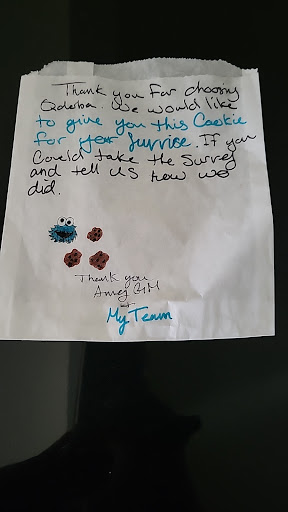 Thank you For choosing
Qdoba. We would like
to give you this Cookie
for your Survice. If you
Could take the Survey
and tell us how we
did.
Thank you
GM
+
My Team